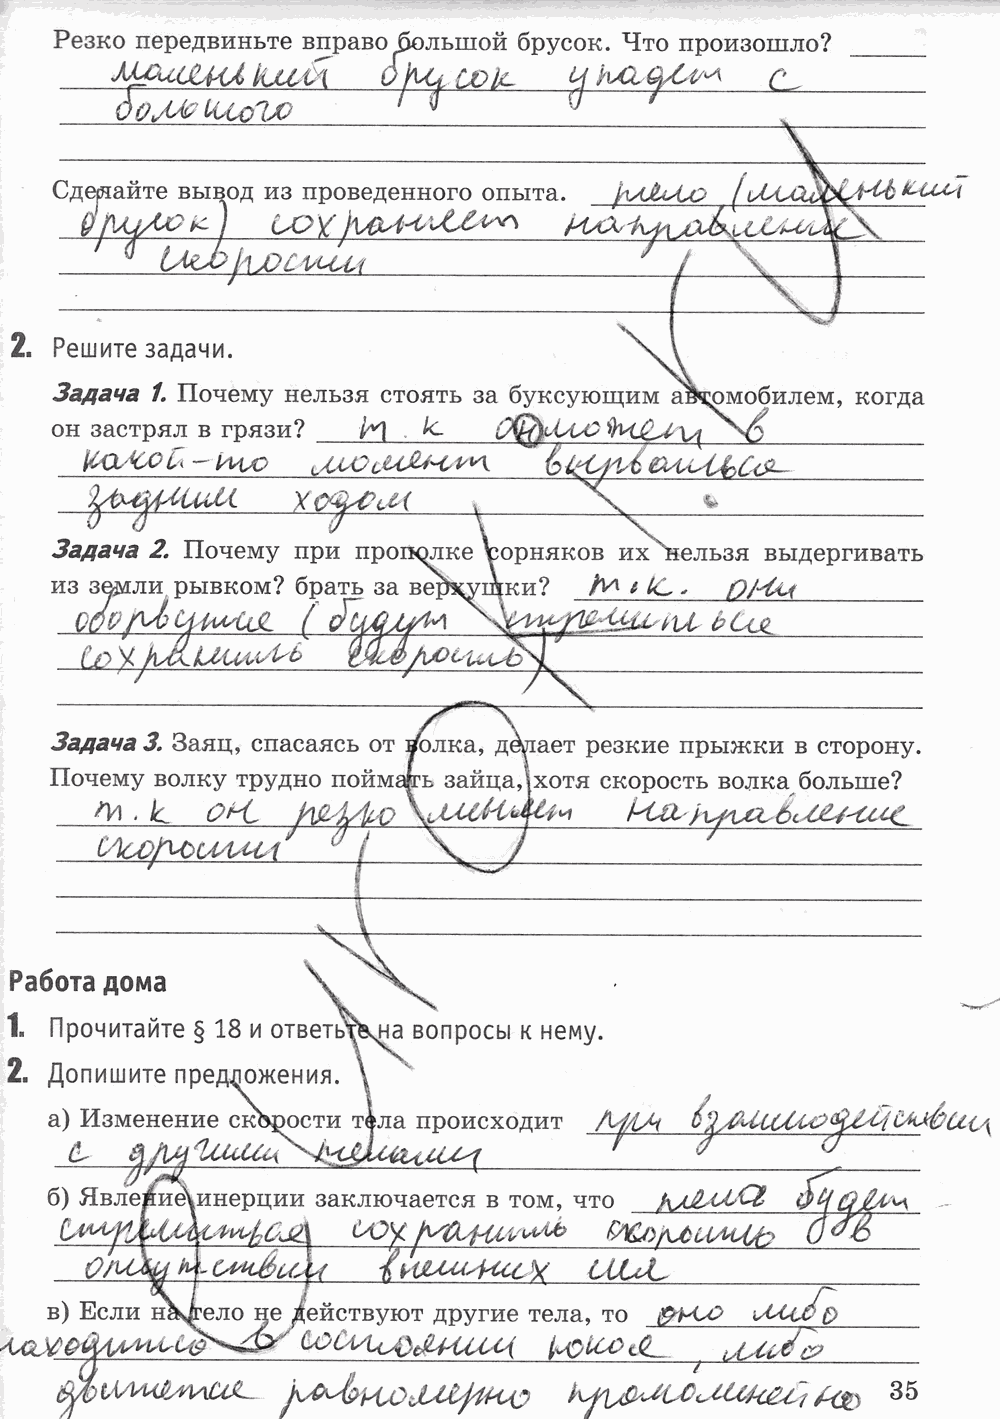 Резко передвиньте вправо большой брусок. Что произошло?
маленький брусок упадет с
большого
Сделайте вывод из проведенного опыта. тело (маленький
брусок) сохраняет направление
скорости
2. Решите задачи.
Задача 1. Почему нельзя стоять за буксующим автомобилем, когда
он застрял в грязи? т.к он может в
какой-то момент вырваться
задним ходом
Задача 2. Почему при прополке сорняков их нельзя выдергивать
из земли рывком? брать за верхушки? т.к. они
оборвутся (будут стремиться
сохранить скорость)
Задача 3. Заяц, спасаясь от волка, делает резкие прыжки в сторону.
Почему волку трудно поймать зайца, хотя скорость волка больше?
т.к он резко меняет направление
скорости
Работа дома
1. Прочитайте § 18 и ответьте на вопросы к нему.
2. Допишите предложения.
а) Изменение скорости тела происходит при взаимодействии
с другими телами
б) Явление инерции заключается в том, что тела будет
стремиться сохранить скорость в
отсутствии внешних сил
в) Если на тело не действуют другие тела, то оно либо
находится в состоянии покоя, либо
движется равномерно прямолинейно
35